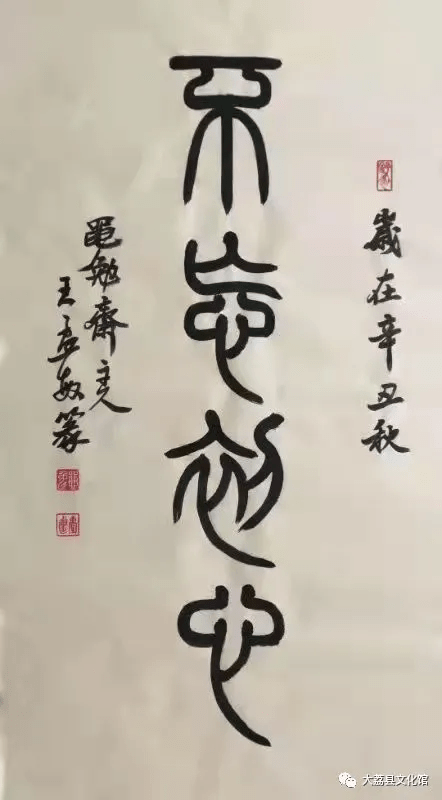 歲在辛丑秋
不忘初心
黽勉齋主人
王孟敏篆
大荔县文化馆